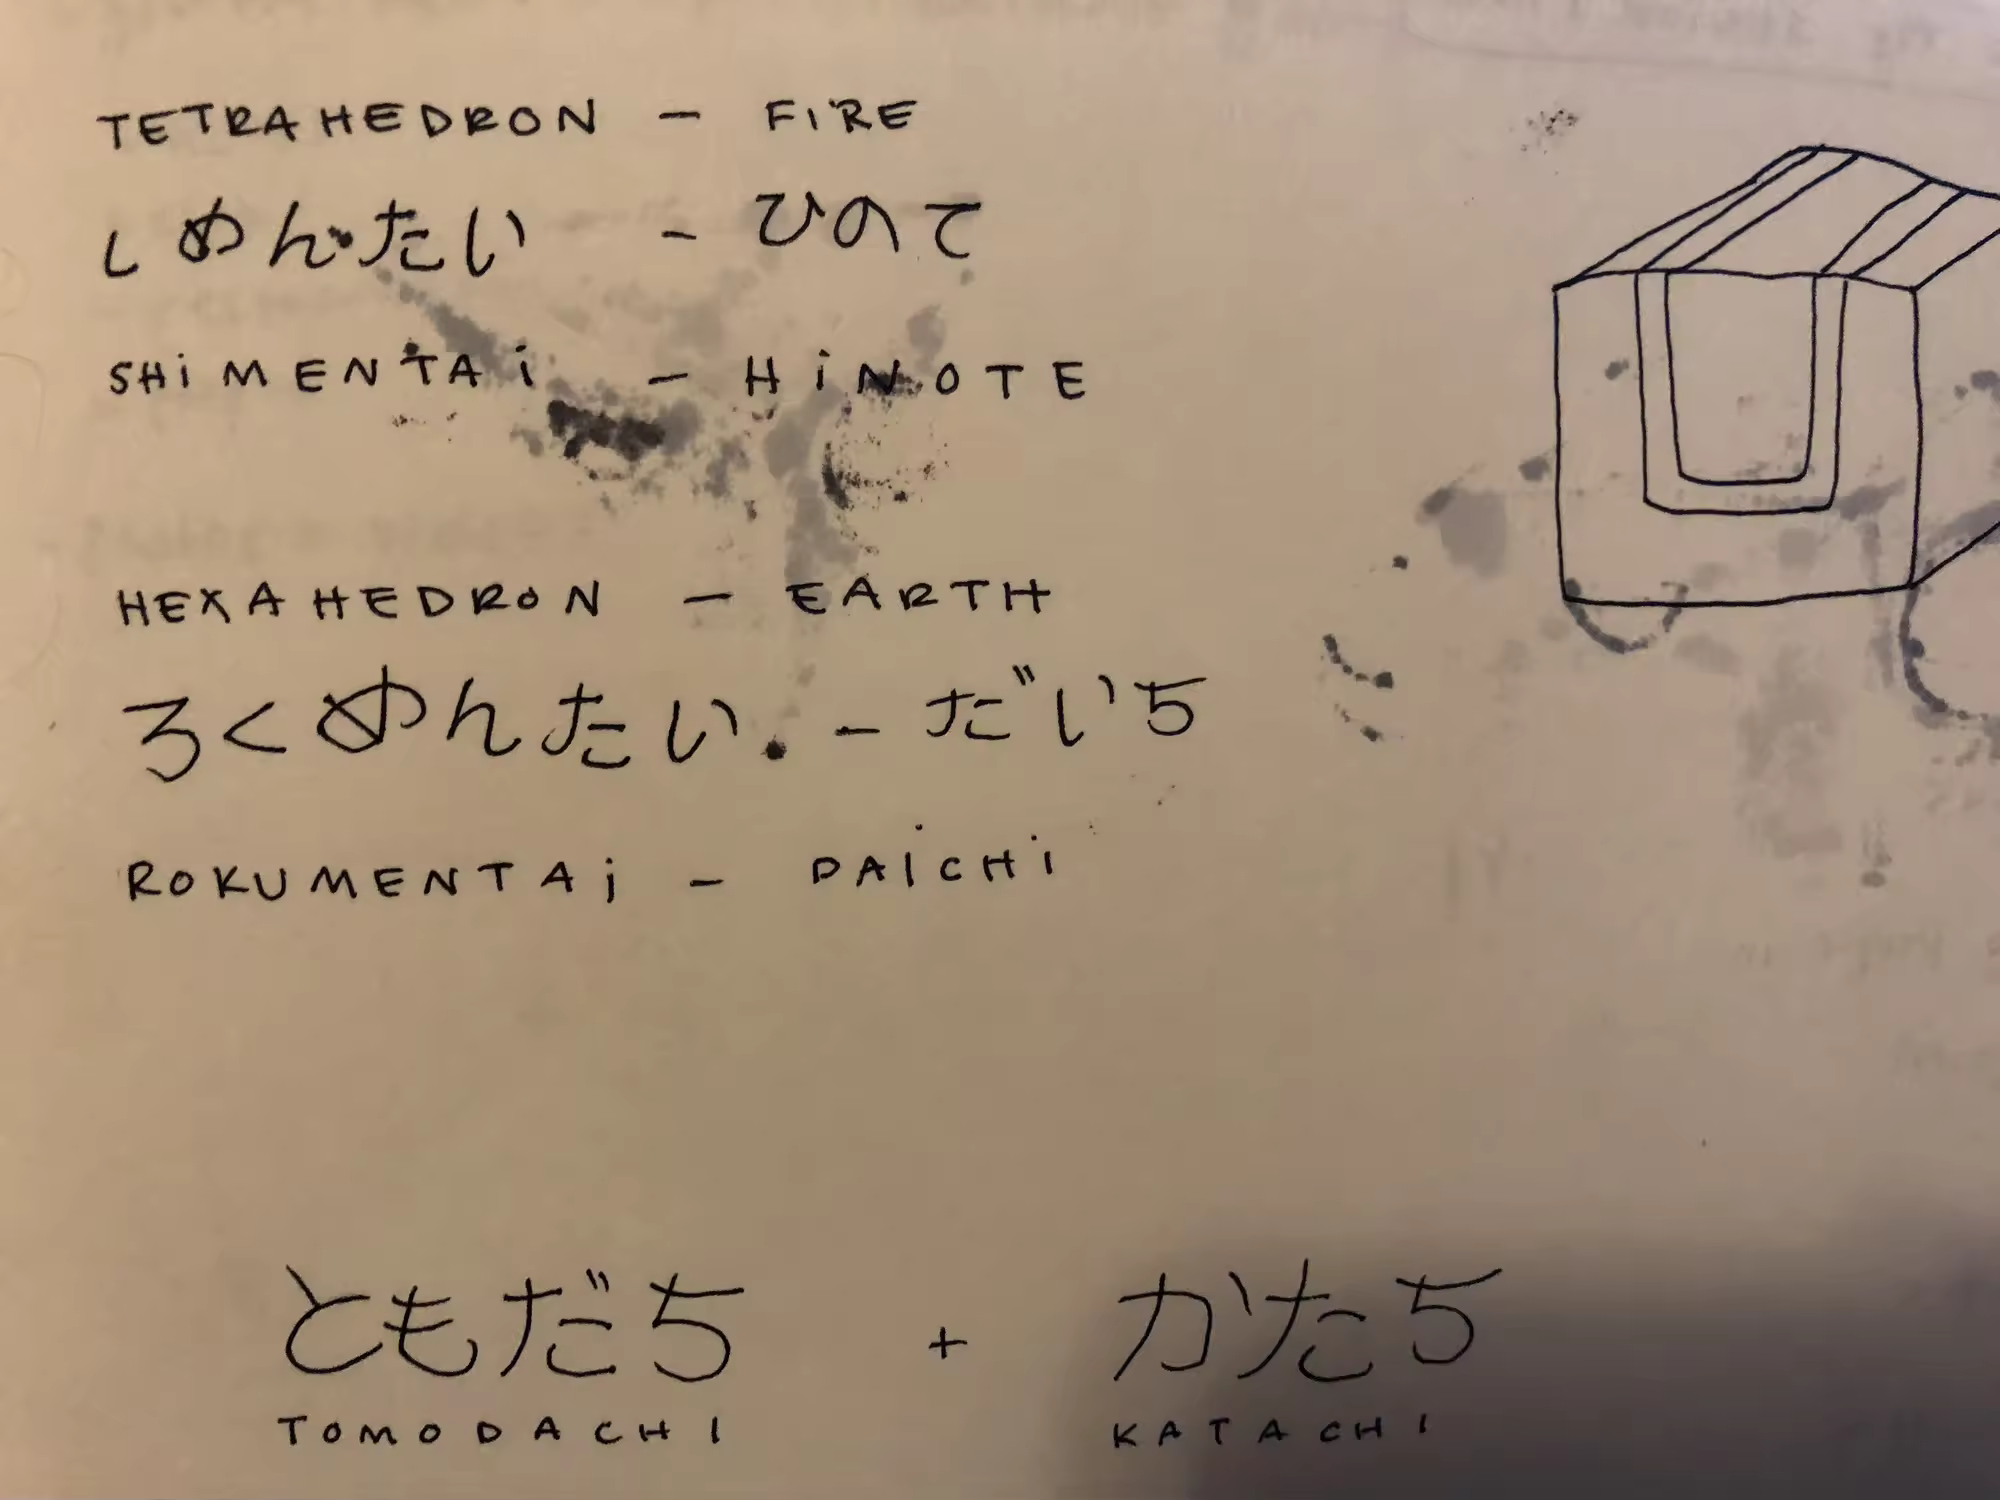 TETRAHEDRON - FIRE
しめんたい - ひのて
SHiMENTAi - HiNOTE
HEXAHEDRON - EARTH
ろくめんたい - だいち
ROKUMENTAi - DAiCHi
ともだち + かたち
TOMODACHI KATACHI